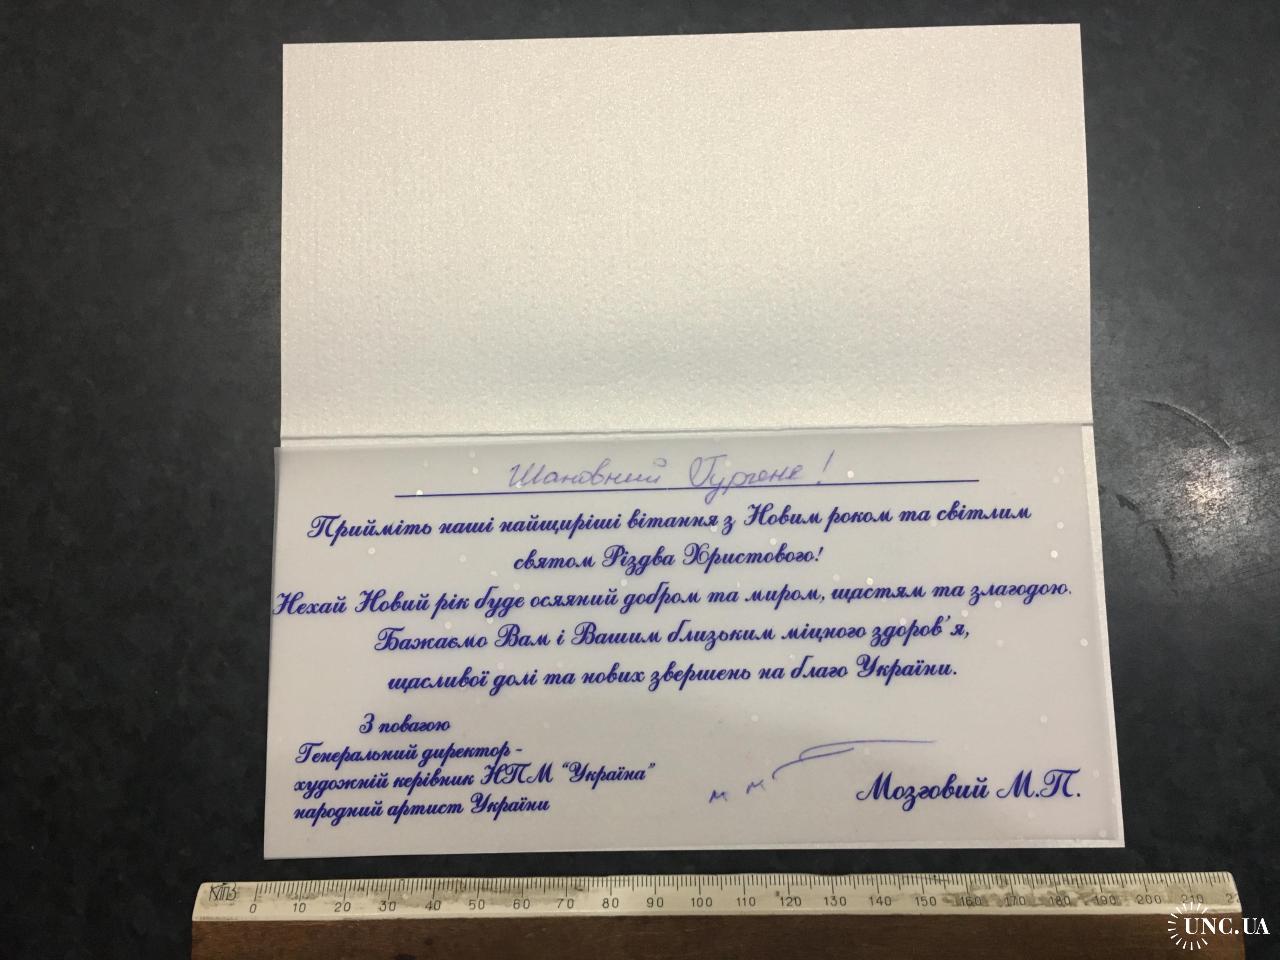 Шановний Гургене!
Прийміть наші найщиріші вітання з Новим роком та світлим
святом Різдва Христового!
Нехай Новий рік буде осяяний добром та миром, щастям та злагодою.
Бажаємо Вам і Вашим близьким міцного здоров'я,
щасливої долі та нових звершень на благо України.
З повагою
Генеральний директор -
художній керівник НПМ "Україна"
народний артист України
Мозговий М.П.
0 10 20 30 40 50 60 70 80 90 100 110 120 130 140 150 160 170 180 190 200 210
UNC.UA